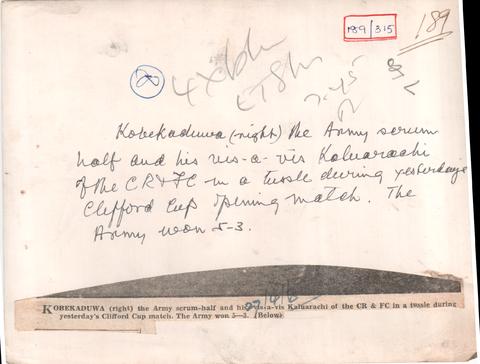 189/315
189
8
Kobekaduwa (right) the Army scrum
half and his vis-a-vis Kaluarachi
of the CR & FC in a tussle during yesterdays
Clifford Cup opening match. The
Army won 5-3.
KOBEKADUWA (right) the Army scrum-half and his vis-a-vis Kaluarachi of the CR & FC in a tussle during
yesterday's Clifford Cup match. The Army won 5—3. (Below)